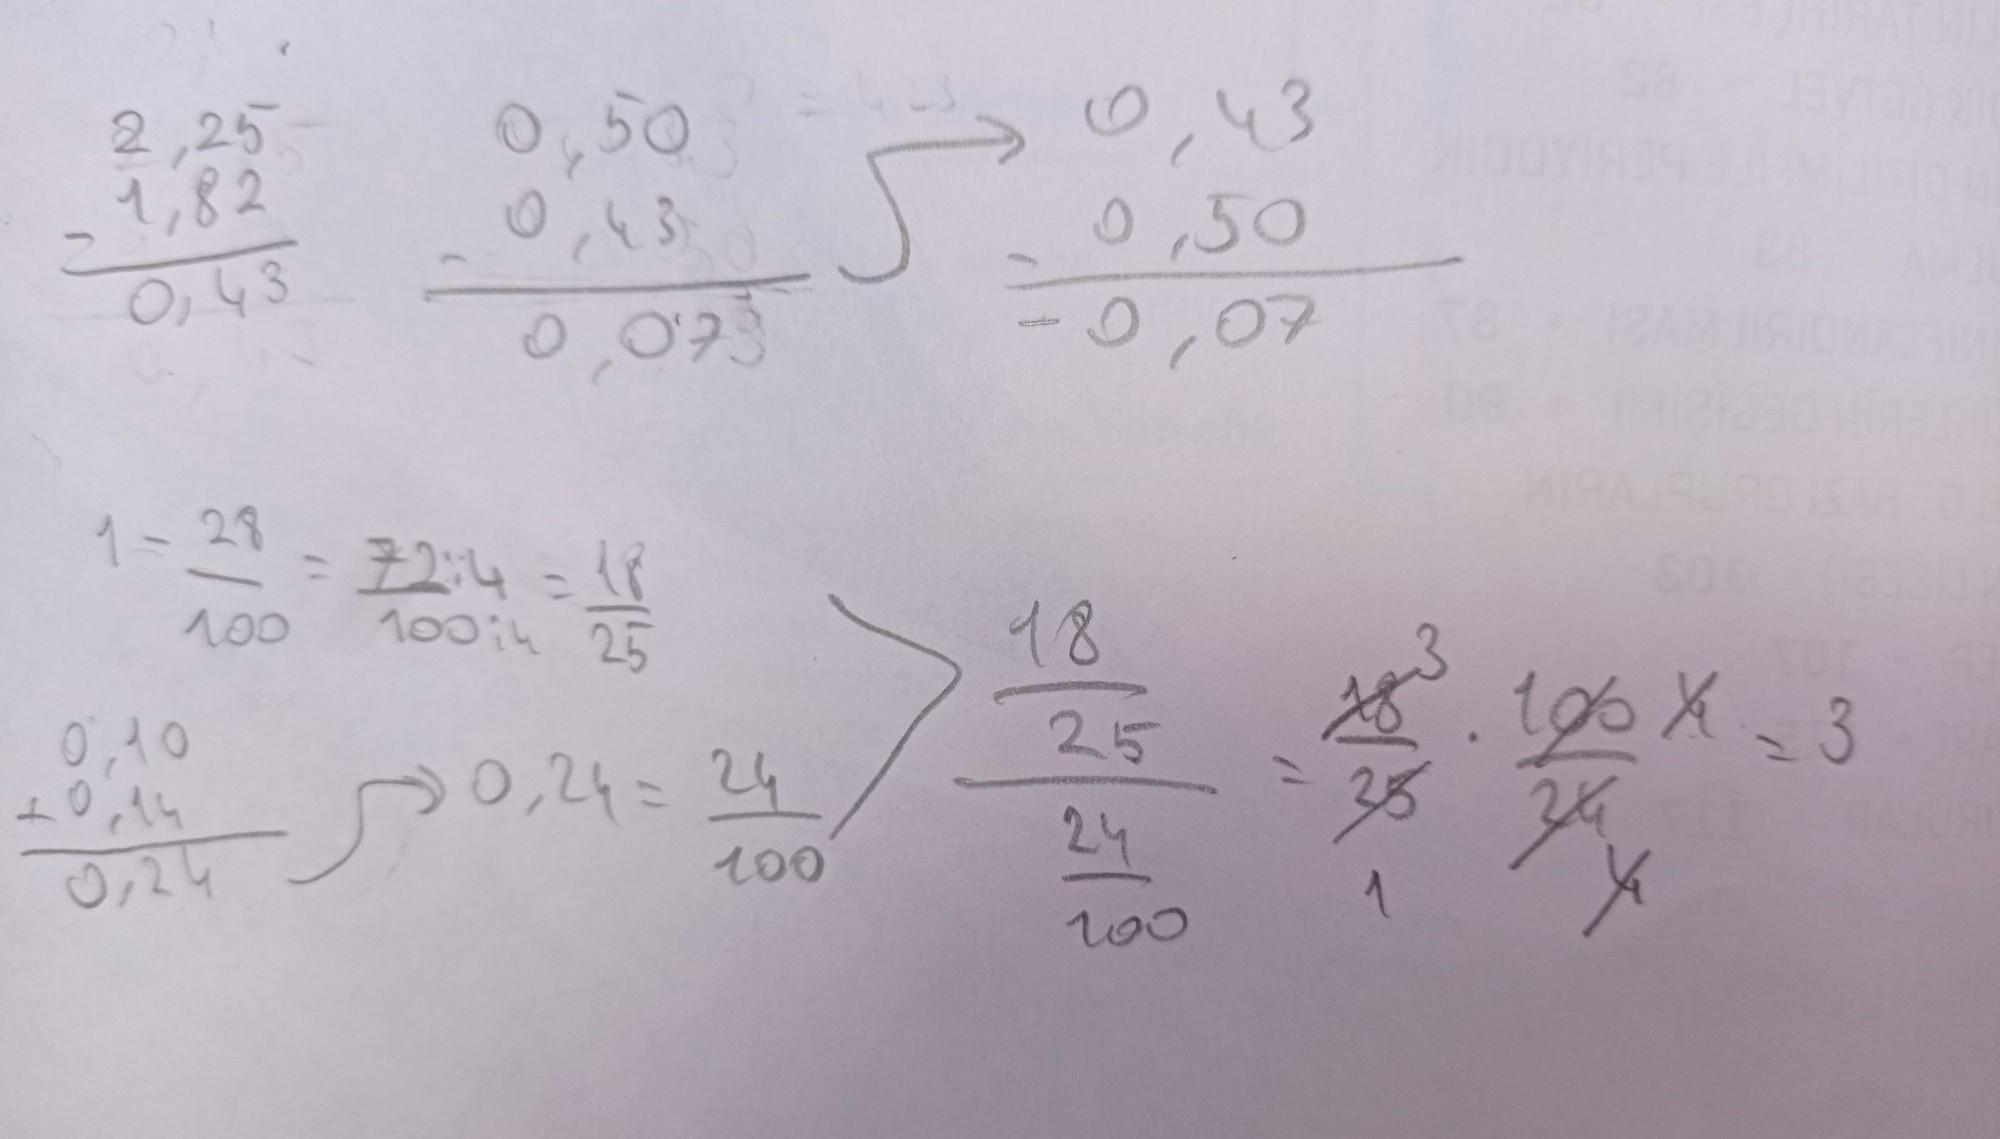 2,25
1,82
-
0,43
0,50
0,43
-
0,07
0,43
0,50
-
-0,07
1 - 28/100 = 72:4/100:4 = 18/25
0,10
+ 0,14
0,24
0,24 = 24/100
18/25
24/100
= 18/25 3 1 . 100/24 4 4 = 3